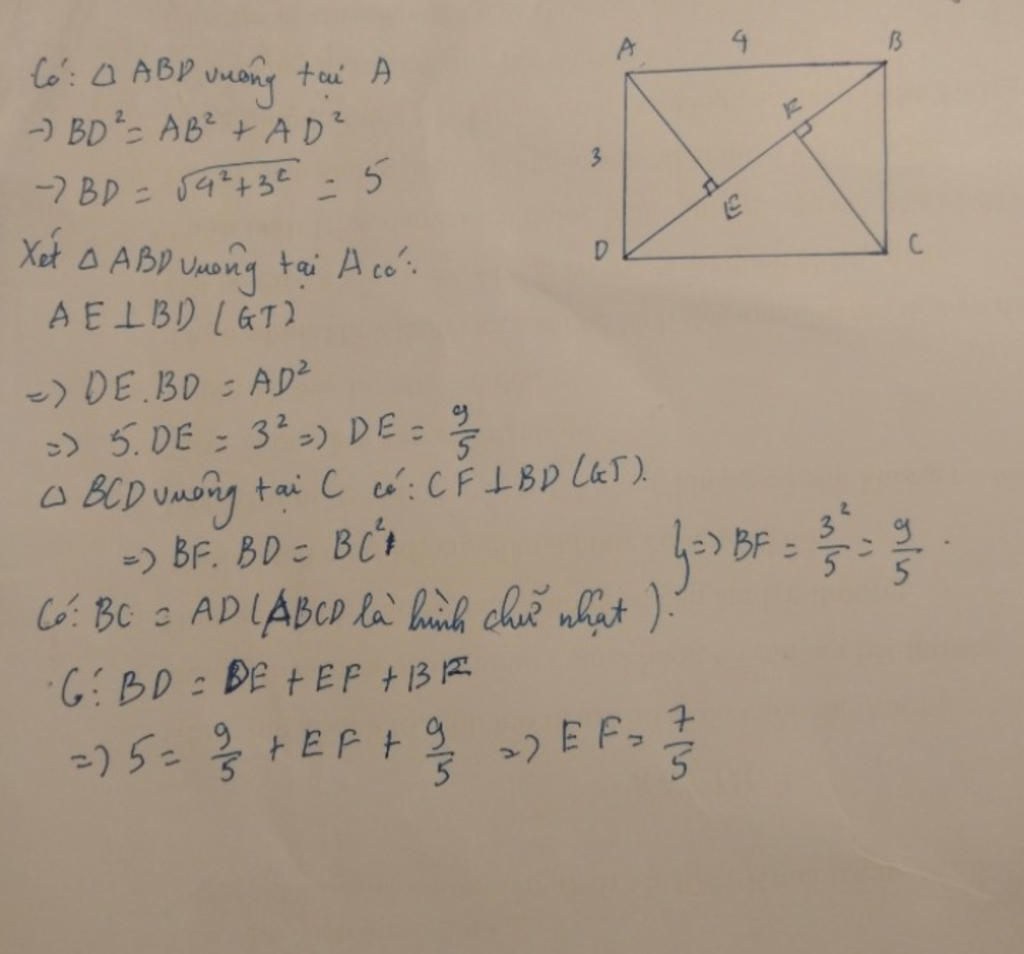 Có: △ ABD vuông tại A
→ BD² = AB² + AD²
→ BD = √4²+3² = 5
Xét △ ABD vuông tại A có:
AE ⊥ BD (GT)
=> DE.BD = AD²
=> 5.DE = 3² => DE = 9/5
△ BCD vuông tại C có: CF ⊥ BD (GT).
=> BF. BD = BC²
Có: BC = AD (ABCD là hình chữ nhật).
} => BF = 3²/5 = 9/5.
Có: BD = DE + EF + BF
=> 5 = 9/5 + EF + 9/5 => EF = 7/5
A 4 B
F
3
E
D C